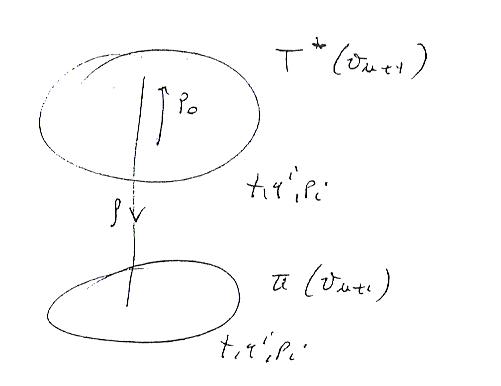 T*(v_{n+1})
p_0
t, q^i, p_i
ρ
π(v_{n+1})
t, q^i, p_i